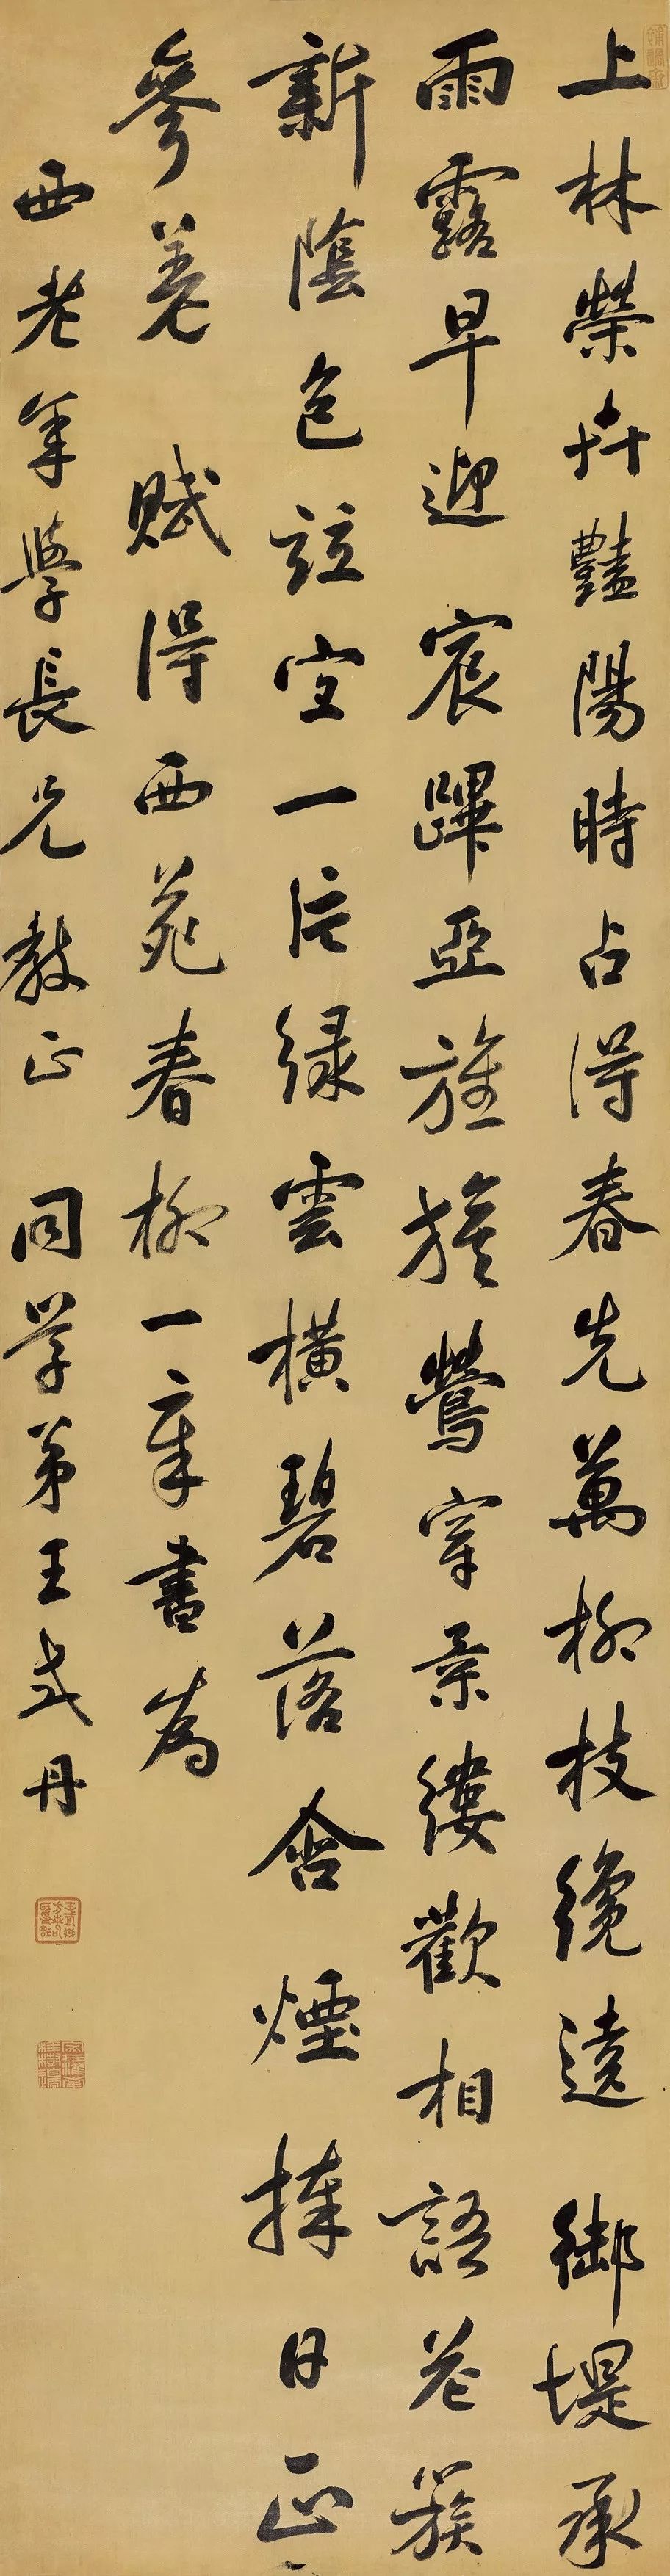 上林榮卉豔陽時占得春先萬柳枝纔遶御堤承
雨露早迎宸蹕亞旌旗鶯穿柔縷歡相語花簇
新陰色竝宜一片綠雲橫碧落含煙捧日正
參差賦得西苑春柳一章書為
西老年學長兄教正同学弟王式丹